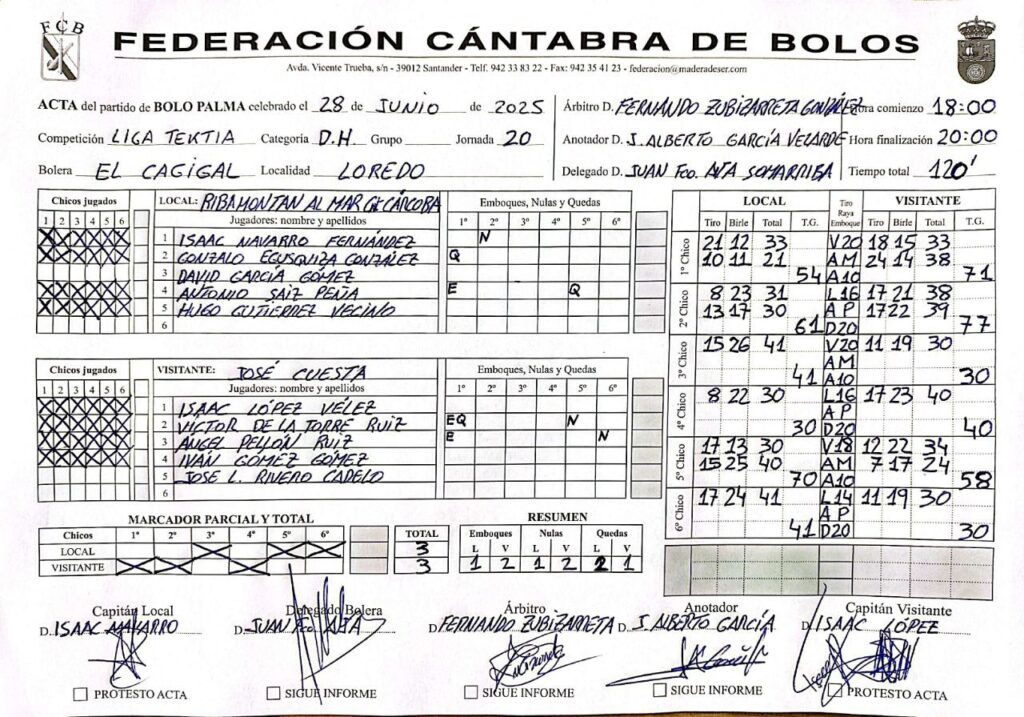 FCB
FEDERACIÓN CÁNTABRA DE BOLOS
Avda. Vicente Trueba, s/n - 39012 Santander - Telf. 942 33 83 22 - Fax: 942 35 41 23 - federacion@maderadeser.com
ACTA del partido de BOLO PALMA celebrado el 28 de JUNIO de 2025
Competición LIGA TEKTIA Categoría D.H. Grupo Jornada 20
Bolera EL CAGIGAL Localidad LOREDO
Árbitro D. FERNANDO ZUBIZARRETA GONZÁLEZ Hora comienzo 18:00
Anotador D. J. ALBERTO GARCÍA VELARDE Hora finalización 20:00
Delegado D. JUAN Fco. AJA SOMARRIBA Tiempo total 120'
Chicos jugados
1 2 3 4 5 6
LOCAL: RIBAMONTAN AL MAR G.CÁRCOBA
Jugadores: nombre y apellidos
Emboques, Nulas y Quedas
1º 2º 3º 4º 5º 6º
1 ISAAC NAVARRO FERNÁNDEZ N
2 GONZALO EGUSQUIZA GONZÁLEZ Q
3 DAVID GARCÍA GÓMEZ
4 ANTONIO SAIZ PEÑA E Q
5 HUGO GUTIERREZ VECINO
6
Chicos jugados
1 2 3 4 5 6
VISITANTE: JOSÉ CUESTA
Jugadores: nombre y apellidos
Emboques, Nulas y Quedas
1º 2º 3º 4º 5º 6º
1 ISAAC LÓPEZ VÉLEZ
2 VICTOR DE LA TORRE RUIZ EQ N
3 ANGEL PELLÓN RUIZ E N
4 IVÁN GÓMEZ GÓMEZ
5 JOSE L. RIVERO CADELO
6
LOCAL Tiro Raya Emboque VISITANTE
Tiro Birle Total T.G. Tiro Birle Total T.G.
1º Chico
21 12 33 V20 18 15 33
10 11 21 AM 24 14 38
54 A10 71
2º Chico
8 23 31 L16 17 21 38
13 17 30 AP 17 22 39
61 D20 77
3º Chico
15 26 41 V20 11 19 30
AM
41 A10 30
4º Chico
8 22 30 L16 17 23 40
AP
30 D20 40
5º Chico
17 13 30 V18 12 22 34
15 25 40 AM 7 17 24
70 A10 58
6º Chico
17 24 41 L14 11 19 30
AP
41 D20 30
MARCADOR PARCIAL Y TOTAL
Chicos 1º 2º 3º 4º 5º 6º TOTAL
LOCAL 3
VISITANTE 3
RESUMEN
Emboques Nulas Quedas
L V L V L V
1 2 1 2 2 1
Capitán Local
D. ISAAC NAVARRO
PROTESTO ACTA
Delegado Bolera
D. JUAN Fco. AJA
SIGUE INFORME
Árbitro
D. FERNANDO ZUBIZARRETA
SIGUE INFORME
Anotador
D. J. ALBERTO GARCÍA
SIGUE INFORME
Capitán Visitante
D. ISAAC LÓPEZ
PROTESTO ACTA